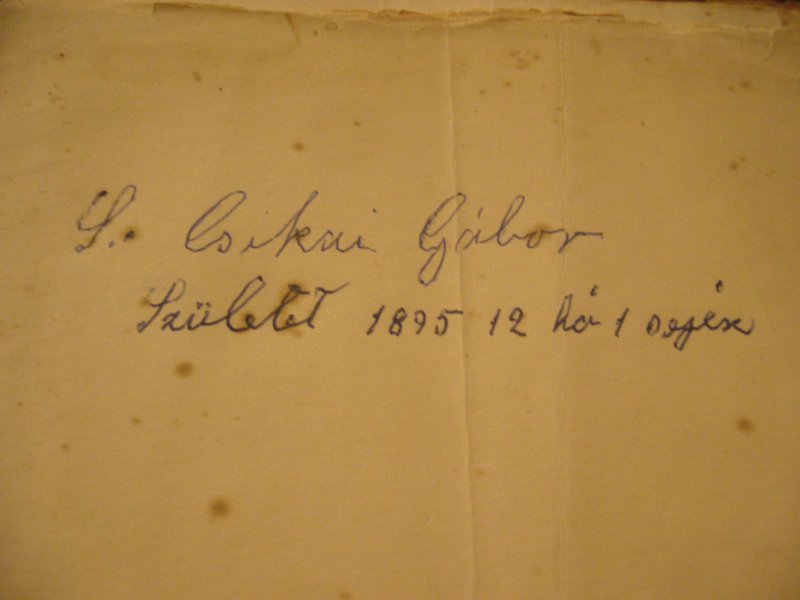 S. Csikai Gábor
Születt 1895 12 hó 1 sején